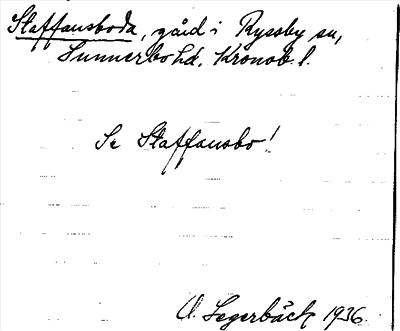 Staffansboda, gård i Ryssby sn,
Sunnerbo hd. Kronob. l.
Se Staffansbo!
O. Segerbäck 1936.